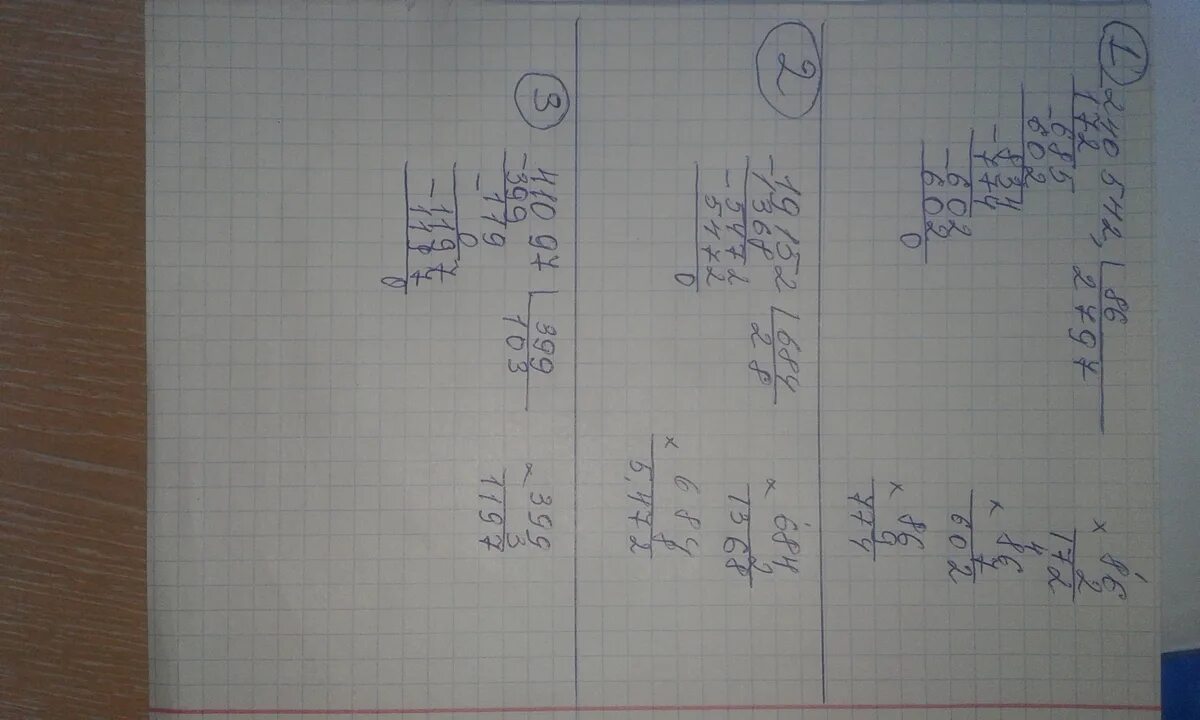 1
-240 542, | 86
172 | 2797
-685
602
-834
774
-602
602
0
× 86
2
172
× 86
7
602
× 86
9
774
2
-19152 | 684
1368 | 28
-5472
5472
0
× 684
2
1368
× 684
8
5,472
3
-410 97 | 399
399 | 103
-119
0
-1197
1197
0
× 399
3
1197